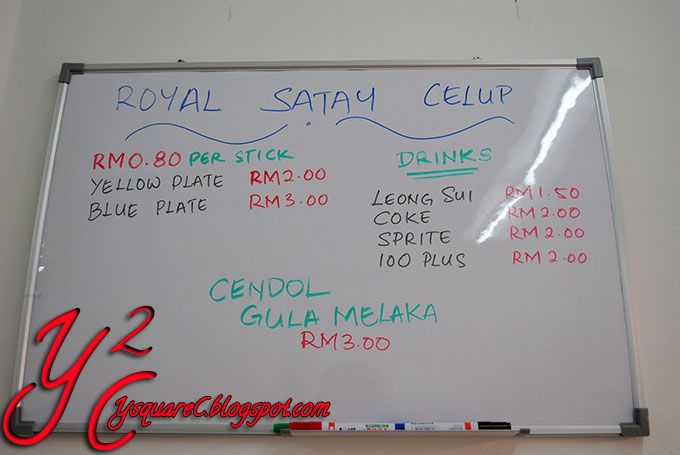 ROYAL SATAY CELUP
RM0.80 PER STICK
YELLOW PLATE RM2.00
BLUE PLATE RM3.00
DRINKS
LEONG SUI RM1.50
COKE RM2.00
SPRITE RM2.00
100 PLUS RM2.00
CENDOL
GULA MELAKA
RM3.00
Y2C
YsquareC.blogspot.com